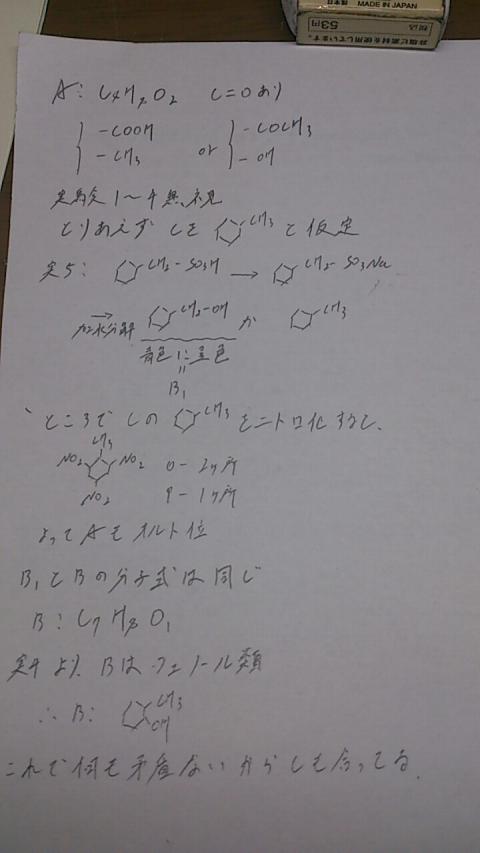 MADE IN JAPAN
53円
税込
A: C8H8O2 C=Oあり
-COOH
-CH3
or
-COCH3
-OH
実験1〜4無視
とりあえずCを CH3 と仮定
実5: CH2-SO3H → CH2-SO3Na
加水分解 → CH2-OH か CH3
青色に呈色
B1
ところでCの CH3 をニトロ化すると、
CH3
NO2 NO2 o-2ヶ所
NO2 P-1ヶ所
よってAもオルト位
B1とBの分子式は同じ
B: C7H8O1
実4より、Bはフェノール類
∴B: CH3
OH
これで何も矛盾ないからCも合ってる.